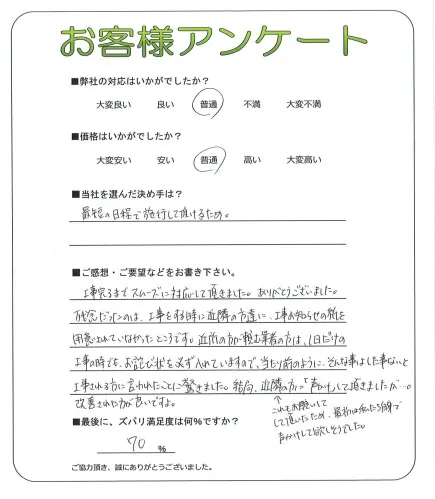 お客様アンケート
■弊社の対応はいかがでしたか?
大変良い 良い 普通 不満 大変不満
■価格はいかがでしたか?
大変安い 安い 普通 高い 大変高い
■当社を選んだ決め手は?
最短の日程で施行して頂けるため。
■ご感想・ご要望などをお書き下さい。
工事完了までスムーズに対応して頂きました。ありがとうございました。
残念だったのは、工事をする時に近隣の方達に、工事お知らせの紙を
用意されていなかったところです。近所の方が頼む業者の方は、1日だけの
工事の時でも、お詫び状を必ず入れていますので、当たり前のように、そんな事はした事ないと
工事される方に言われたことに驚きました。結局、近隣の方に声かけして頂きましたが…。
改善された方が良いですよ。
↑これもお願いして
して頂いたため、最初は私たち自身で
声かけして欲しそうでした。
■最後に、ズバリ満足度は何%ですか?
70 %
ご協力頂き、誠にありがとうございました。